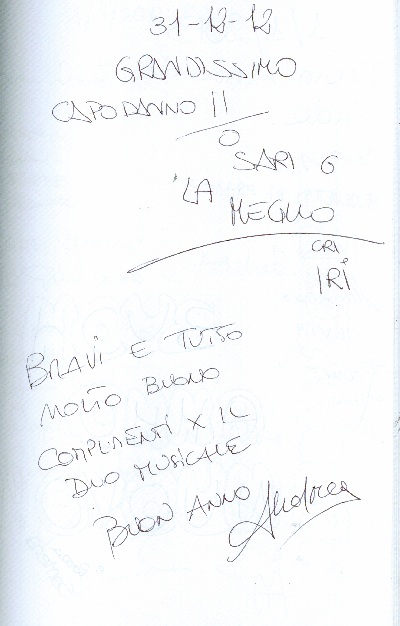 31-12-12
GRANDISSIMO
CAPODANNO !!
O
SARI 6
'LA
MEGLIO
CRI
IRI
BRAVI E TUTTO
MOLTO BUONO
COMPLIMENTI X IL
DUO MUSICALE
BUON ANNO Andrea